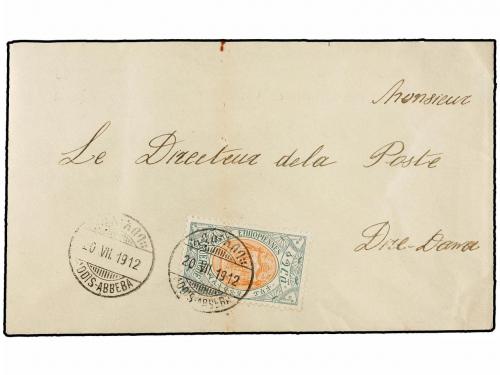 Monsieur
Le Directeur dela Poste
Dire-Daoua
20 VII. 1912
ADDIS-ABBEBA
ETHIOPIENNES
20 VII. 1912
ADDIS-ABBEBA